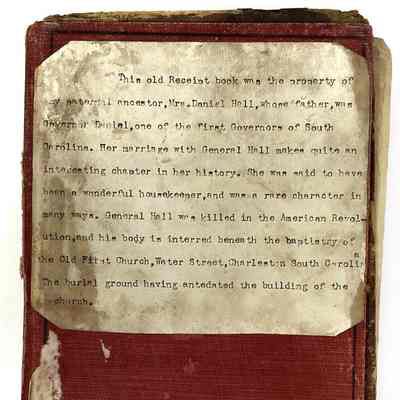 This old Receipt book was the property of
my maternal ancestor,Mrs.Daniel Hall,whose father,was
Governor Daniel,one of the first Governors of South
Carolina. Her marriage with General Hall makes quite an
interesting chapter in her history. She was said to have
been a wonderful housekeeper,and was a rare character in
many ways. General Hall was killed in the American Revol-
ution,and his body is interred beneath the baptistry of
the Old First Church,Water Street,Charleston South Carolina
The burial ground having antedated the building of the
church.